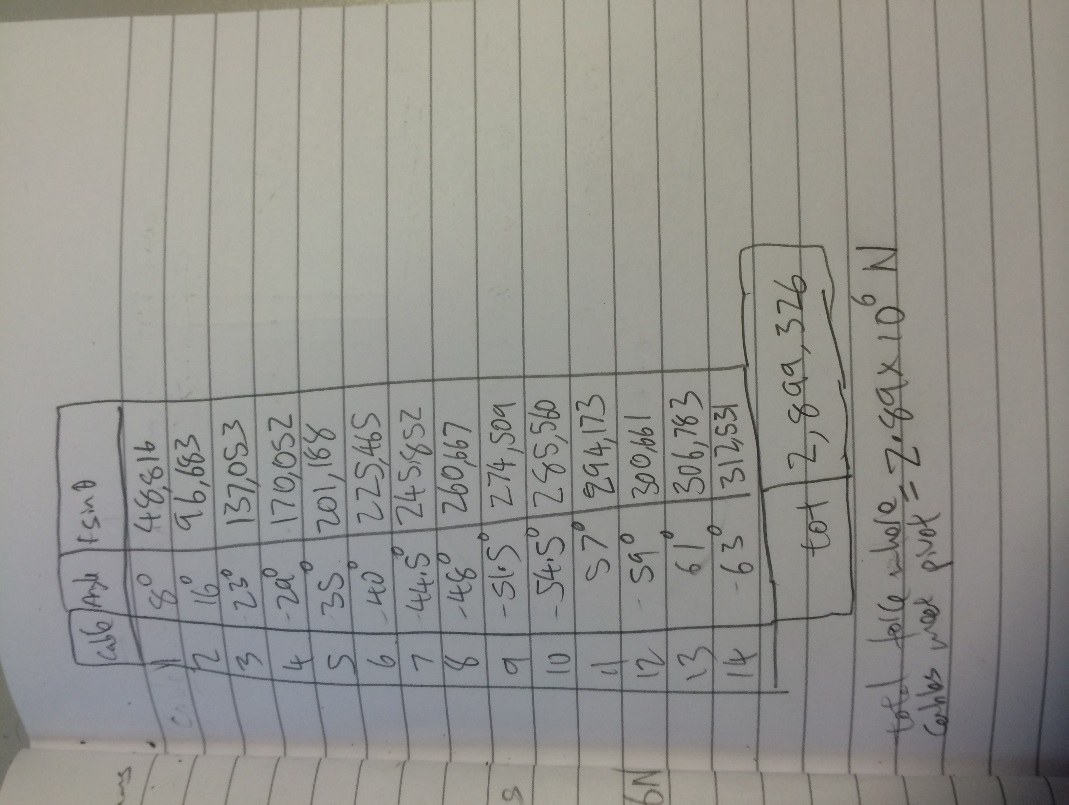 Cable Angle Fsinθ
1 8° 48,816
2 16° 96,683
3 -23° 137,053
4 -29° 170,052
5 35° 201,188
6 -40° 225,465
7 -44.5° 245,852
8 -48° 260,667
9 -51.5° 274,509
10 -54.5° 285,560
11 57° 294,173
12 -59° 300,661
13 61° 306,783
14 -63° 312,531
tot 2,899,326
total force where
cables meet pivot = 2.89x10⁶ N